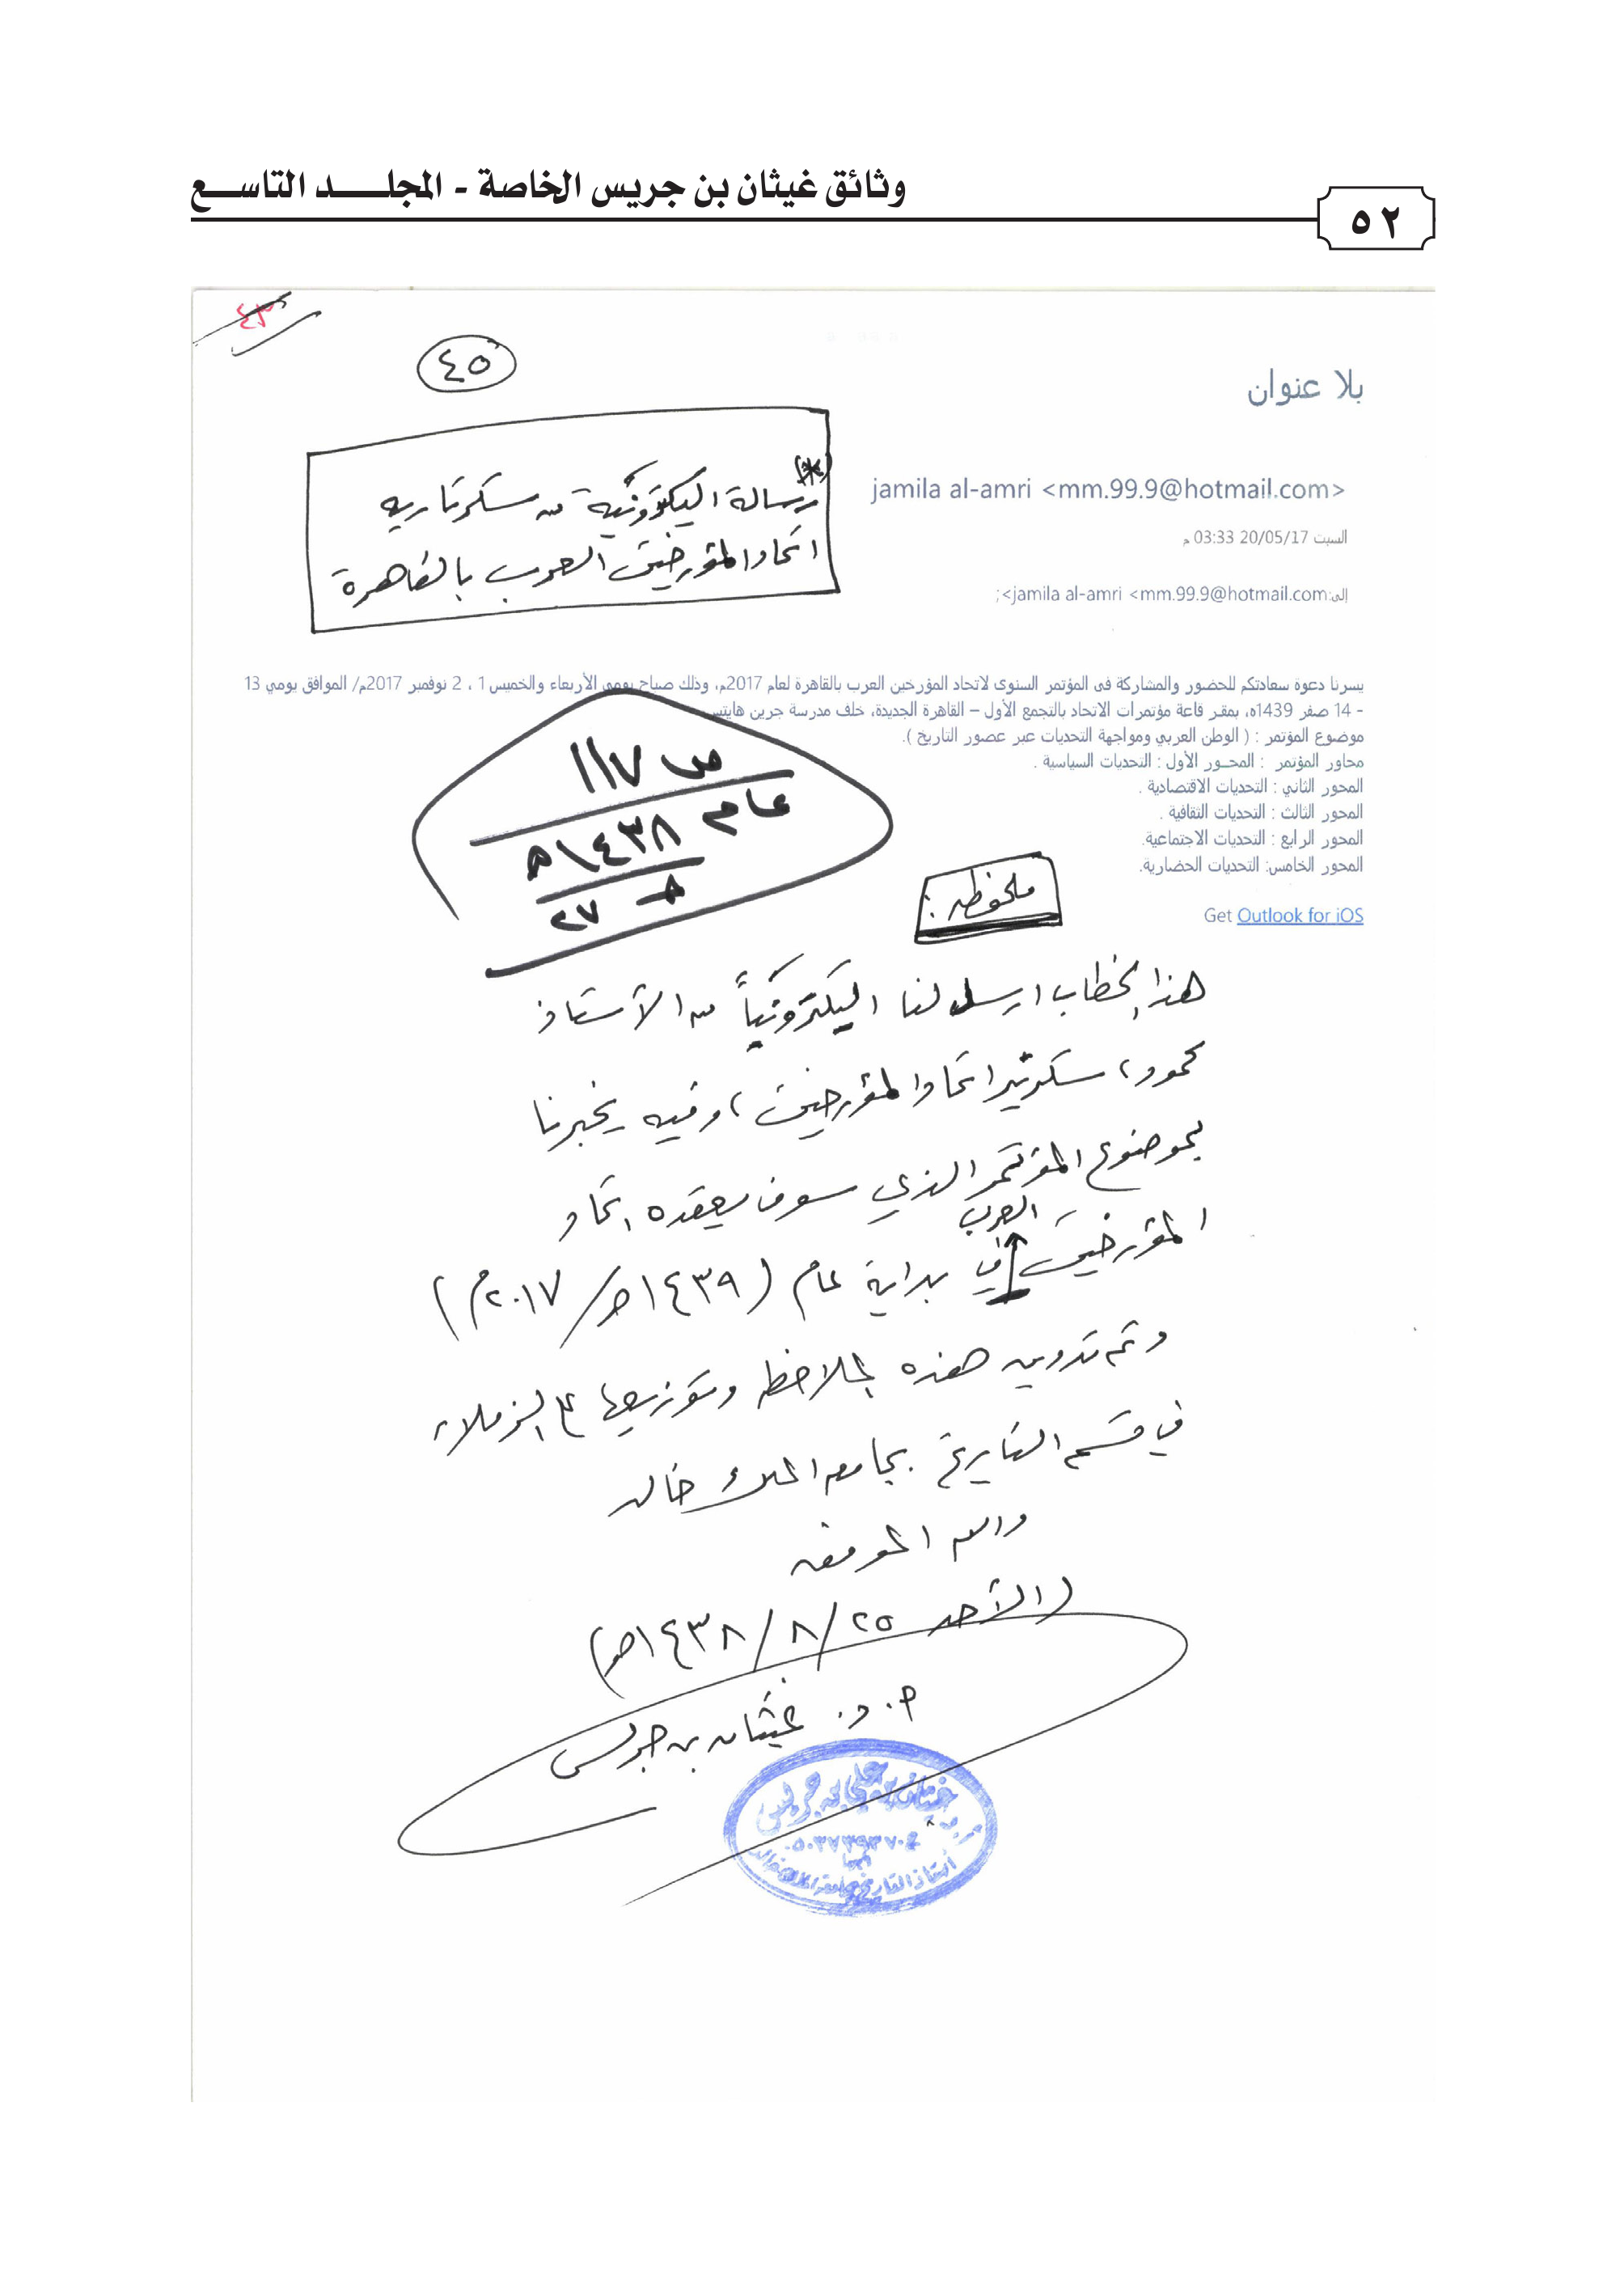 وثائق غيثان بن جريس الخاصة - المجلـــــد التاســـع
٥٢
٤٣
٤٥
بلا عنوان
(*)
رسالة اليكترونية من سكرتاريه
اتحاد المؤرخين العرب بالقاهرة
jamila al-amri <mm.99.9@hotmail.com>
السبت 20/05/17 03:33 م
إلى:jamila al-amri <mm.99.9@hotmail.com>;
يسرنا دعوة سعادتكم للحضور والمشاركة فى المؤتمر السنوى لاتحاد المؤرخين العرب بالقاهرة لعام 2017م، وذلك صباح يومي الأربعاء والخميس 1 ، 2 نوفمبر 2017م/ الموافق يومي 13
- 14 صفر 1439ه، بمقر قاعة مؤتمرات الاتحاد بالتجمع الأول – القاهرة الجديدة، خلف مدرسة جرين هايتس
موضوع المؤتمر : ( الوطن العربي ومواجهة التحديات عبر عصور التاريخ ).
محاور المؤتمر : المحـور الأول : التحديات السياسية .
المحور الثاني : التحديات الاقتصادية .
المحور الثالث : التحديات الثقافية .
المحور الرابع : التحديات الاجتماعية.
المحور الخامس: التحديات الحضارية.
Get Outlook for iOS
ص ١١٧
عام ١٤٣٨ه
٢٧
ملحوظه :
هذا الخطاب ارسل لنا اليكترونياً من الأستاذ
محمود، سكرتير اتحاد المؤرخين، وفيه يخبرنا
بموضوع المؤتمر الذي سوف يعقده اتحاد
المؤرخين العرب في بداية عام (١٤٣٩هـ/٢٠١٧م)
وتم تدوين هذه الملاحظ وتوزيعها ع الزملاء
في قسم التاريخ بجامعه الملك خالد
والله الموفق
(الأحد ٢٥/٨/١٤٣٨هـ)
أ. د. غيثان بن جريس
غيثان بن علي بن جريس
أستاذ التاريخ بجامعة الملك خالد